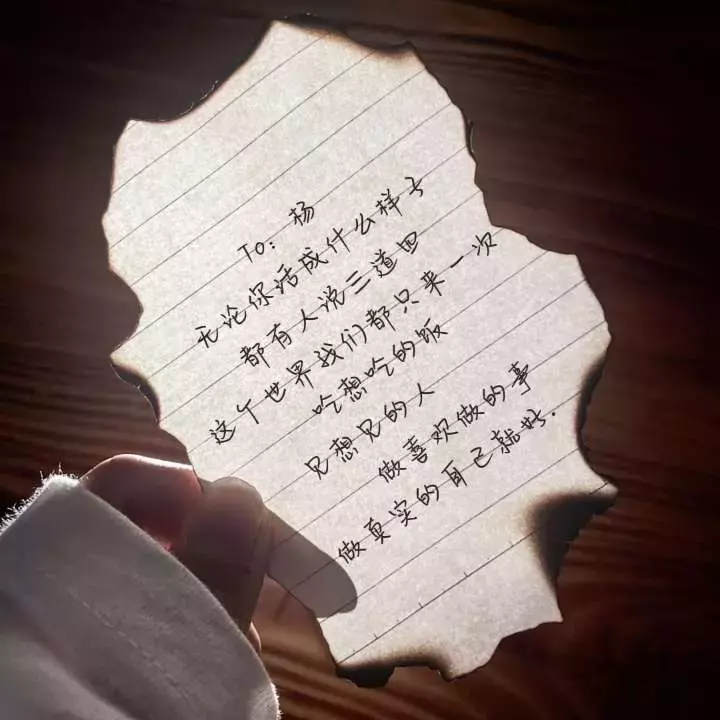 To: 杨
无论你活成什么样子
都有人说三道四
这个世界我们都只来一次
吃想吃的饭
见想见的人
做喜欢做的事
做真实的自己就好.